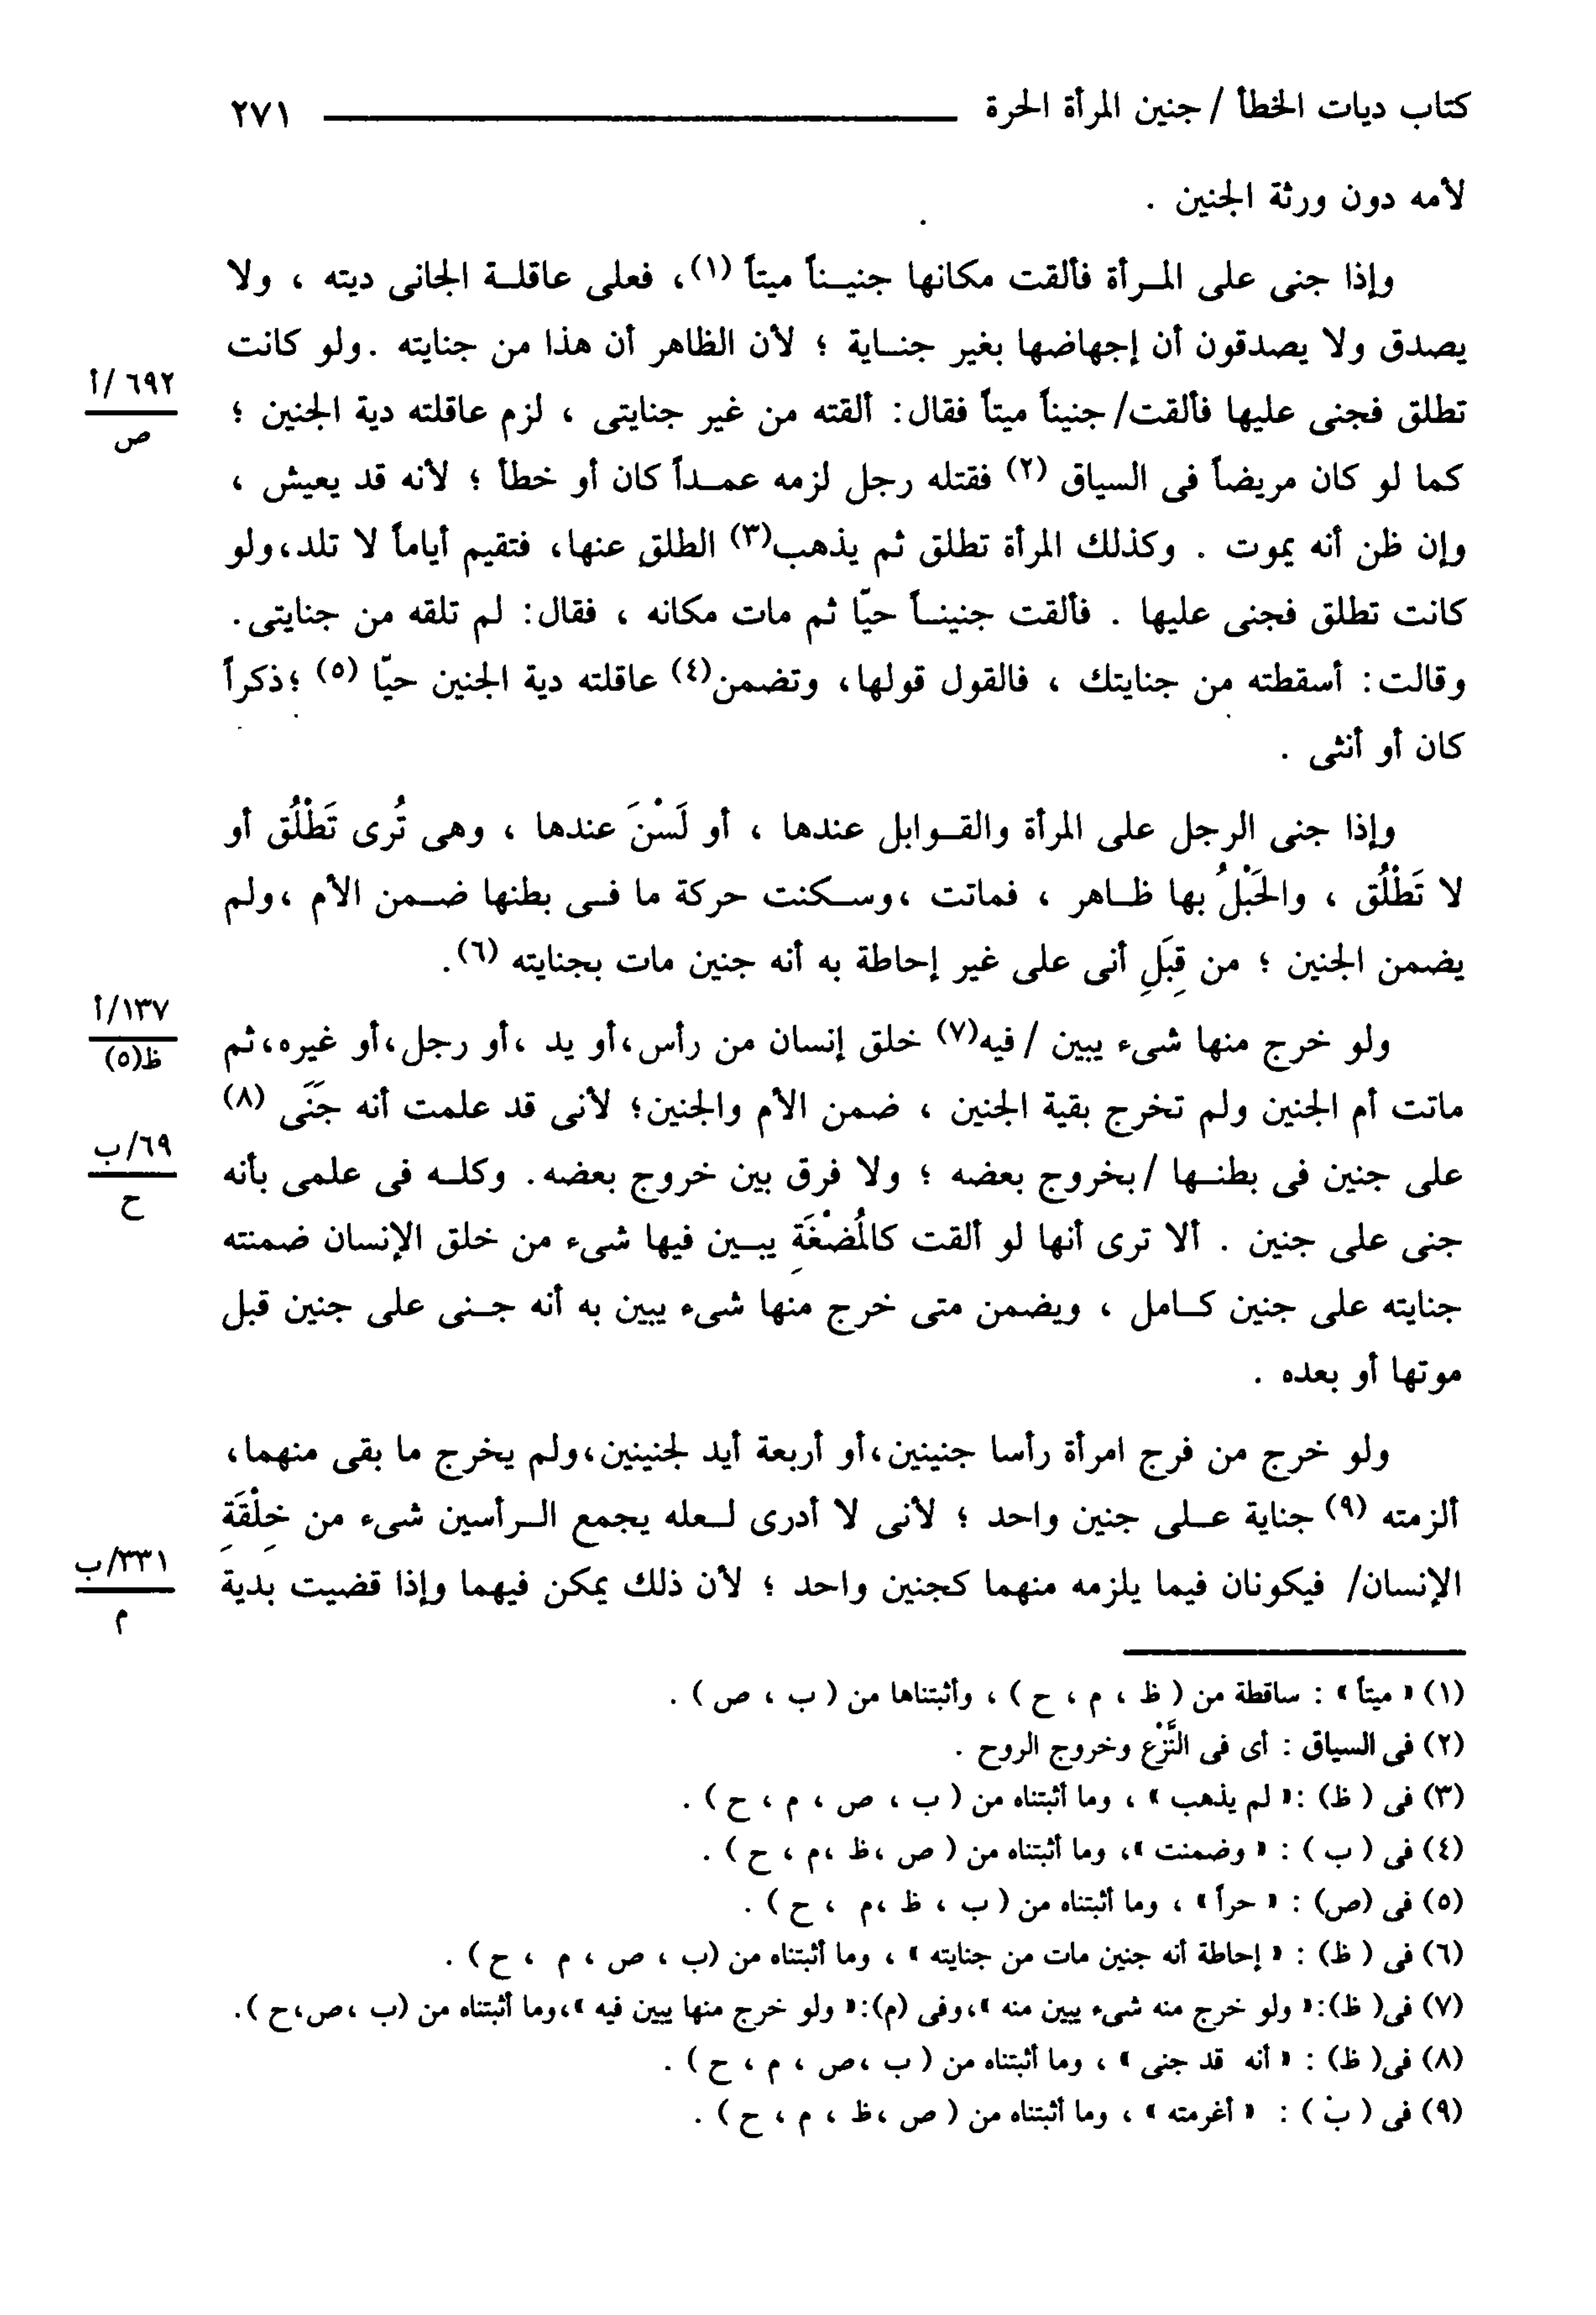 كتاب ديات الخطأ / جنين المرأة الحرة ــــــــــــــــ ٢٧١
لأمه دون ورثة الجنين .
وإذا جنى على المرأة فألقت مكانها جنيناً ميتاً (١)، فعلى عاقلة الجانى ديته ، ولا
يصدق ولا يصدقون أن إجهاضها بغير جناية ؛ لأن الظاهر أن هذا من جنايته . ولو كانت
٦٩٢ /أ
ص
تطلق فجنى عليها فألقت/ جنيناً ميتاً فقال: ألقته من غير جنايتى ، لزم عاقلته دية الجنين ؛
كما لو كان مريضاً فى السياق (٢) فقتله رجل لزمه عمداً كان أو خطأ ؛ لأنه قد يعيش ،
وإن ظن أنه يموت . وكذلك المرأة تطلق ثم يذهب(٣) الطلق عنها، فتقيم أياماً لا تلد،ولو
كانت تطلق فجنى عليها . فألقت جنيناً حيّا ثم مات مكانه ، فقال: لم تلقه من جنايتى.
وقالت: أسقطته من جنايتك ، فالقول قولها، وتضمن(٤) عاقلته دية الجنين حيّا (٥) ؛ذكراً
كان أو أنثى .
وإذا جنى الرجل على المرأة والقوابل عندها ، أو لَسْنَ عندها ، وهى تُرى تَطْلُق أو
لا تَطْلُق ، والحَبْلُ بها ظاهر ، فماتت ،وسكنت حركة ما فى بطنها ضمن الأم ،ولم
يضمن الجنين ؛ من قِبَلِ أنى على غير إحاطة به أنه جنين مات بجنايته (٦).
١٣٧/أ
ظ(٥)
ولو خرج منها شىء يبين / فيه(٧) خلق إنسان من رأس،أو يد ،أو رجل،أو غيره،ثم
ماتت أم الجنين ولم تخرج بقية الجنين ، ضمن الأم والجنين؛ لأنى قد علمت أنه جَنَى (٨)
٦٩/ب
ح
على جنين فى بطنها /بخروج بعضه ؛ ولا فرق بين خروج بعضه. وكله فى علمى بأنه
جنى على جنين . ألا ترى أنها لو ألقت كالمُضْغَةِ يبين فيها شىء من خلق الإنسان ضمنته
جنايته على جنين كامل ، ويضمن متى خرج منها شىء يبين به أنه جنى على جنين قبل
موتها أو بعده .
ولو خرج من فرج امرأة رأسا جنينين،أو أربعة أيد لجنينين،ولم يخرج ما بقى منهما،
ألزمته (٩) جناية على جنين واحد ؛ لأنى لا أدرى لعله يجمع الرأسين شىء من خِلْقَةِ
٣٣١/ب
م
الإنسان/ فيكونان فيما يلزمه منهما كجنين واحد ؛ لأن ذلك يمكن فيهما وإذا قضيت بدية
(١) « ميتاً » : ساقطة من ( ظ ، م ، ح ) ، وأثبتناها من ( ب ، ص ) .
(٢) فى السياق : أى فى النَّزْع وخروج الروح .
(٣) فى ( ظ) :« لم يذهب » ، وما أثبتناه من ( ب ، ص ، م ، ح ) .
(٤) فى ( ب ) : « وضمنت »، وما أثبتناه من ( ص ،ظ ،م ، ح ) .
(٥) فى (ص) : « حراً » ، وما أثبتناه من ( ب ، ظ ،م ، ح ) .
(٦) فى ( ظ) : « إحاطة أنه جنين مات من جنايته » ، وما أثبتناه من (ب ، ص ، م ، ح ) .
(٧) فى( ظ):« ولو خرج منه شىء يبين منه »،وفى (م):« ولو خرج منها يبين فيه »،وما أثبتناه من (ب ،ص،ح ).
(٨) فى( ظ) : « أنه قد جنى » ، وما أثبتناه من ( ب ،ص ، م ، ح ) .
(٩) فى ( ب ) : « أغرمته » ، وما أثبتناه من ( ص ،ظ ، م ، ح ) .